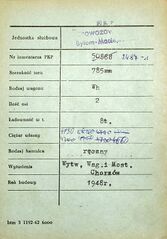 Jednostka służbowa
Bytom-Maciej
Nr inwentarza PKP 50868
Szerokość toru 785mm
Rodzaj wagonu Wh
Ilość osi 2
Ładowność w t. 8t.
Ciężar własny
Rodzaj hamulca ręczny
Wytwórnia Wytw. Wag. i Most. Chorzów
Rok budowy 1948r.